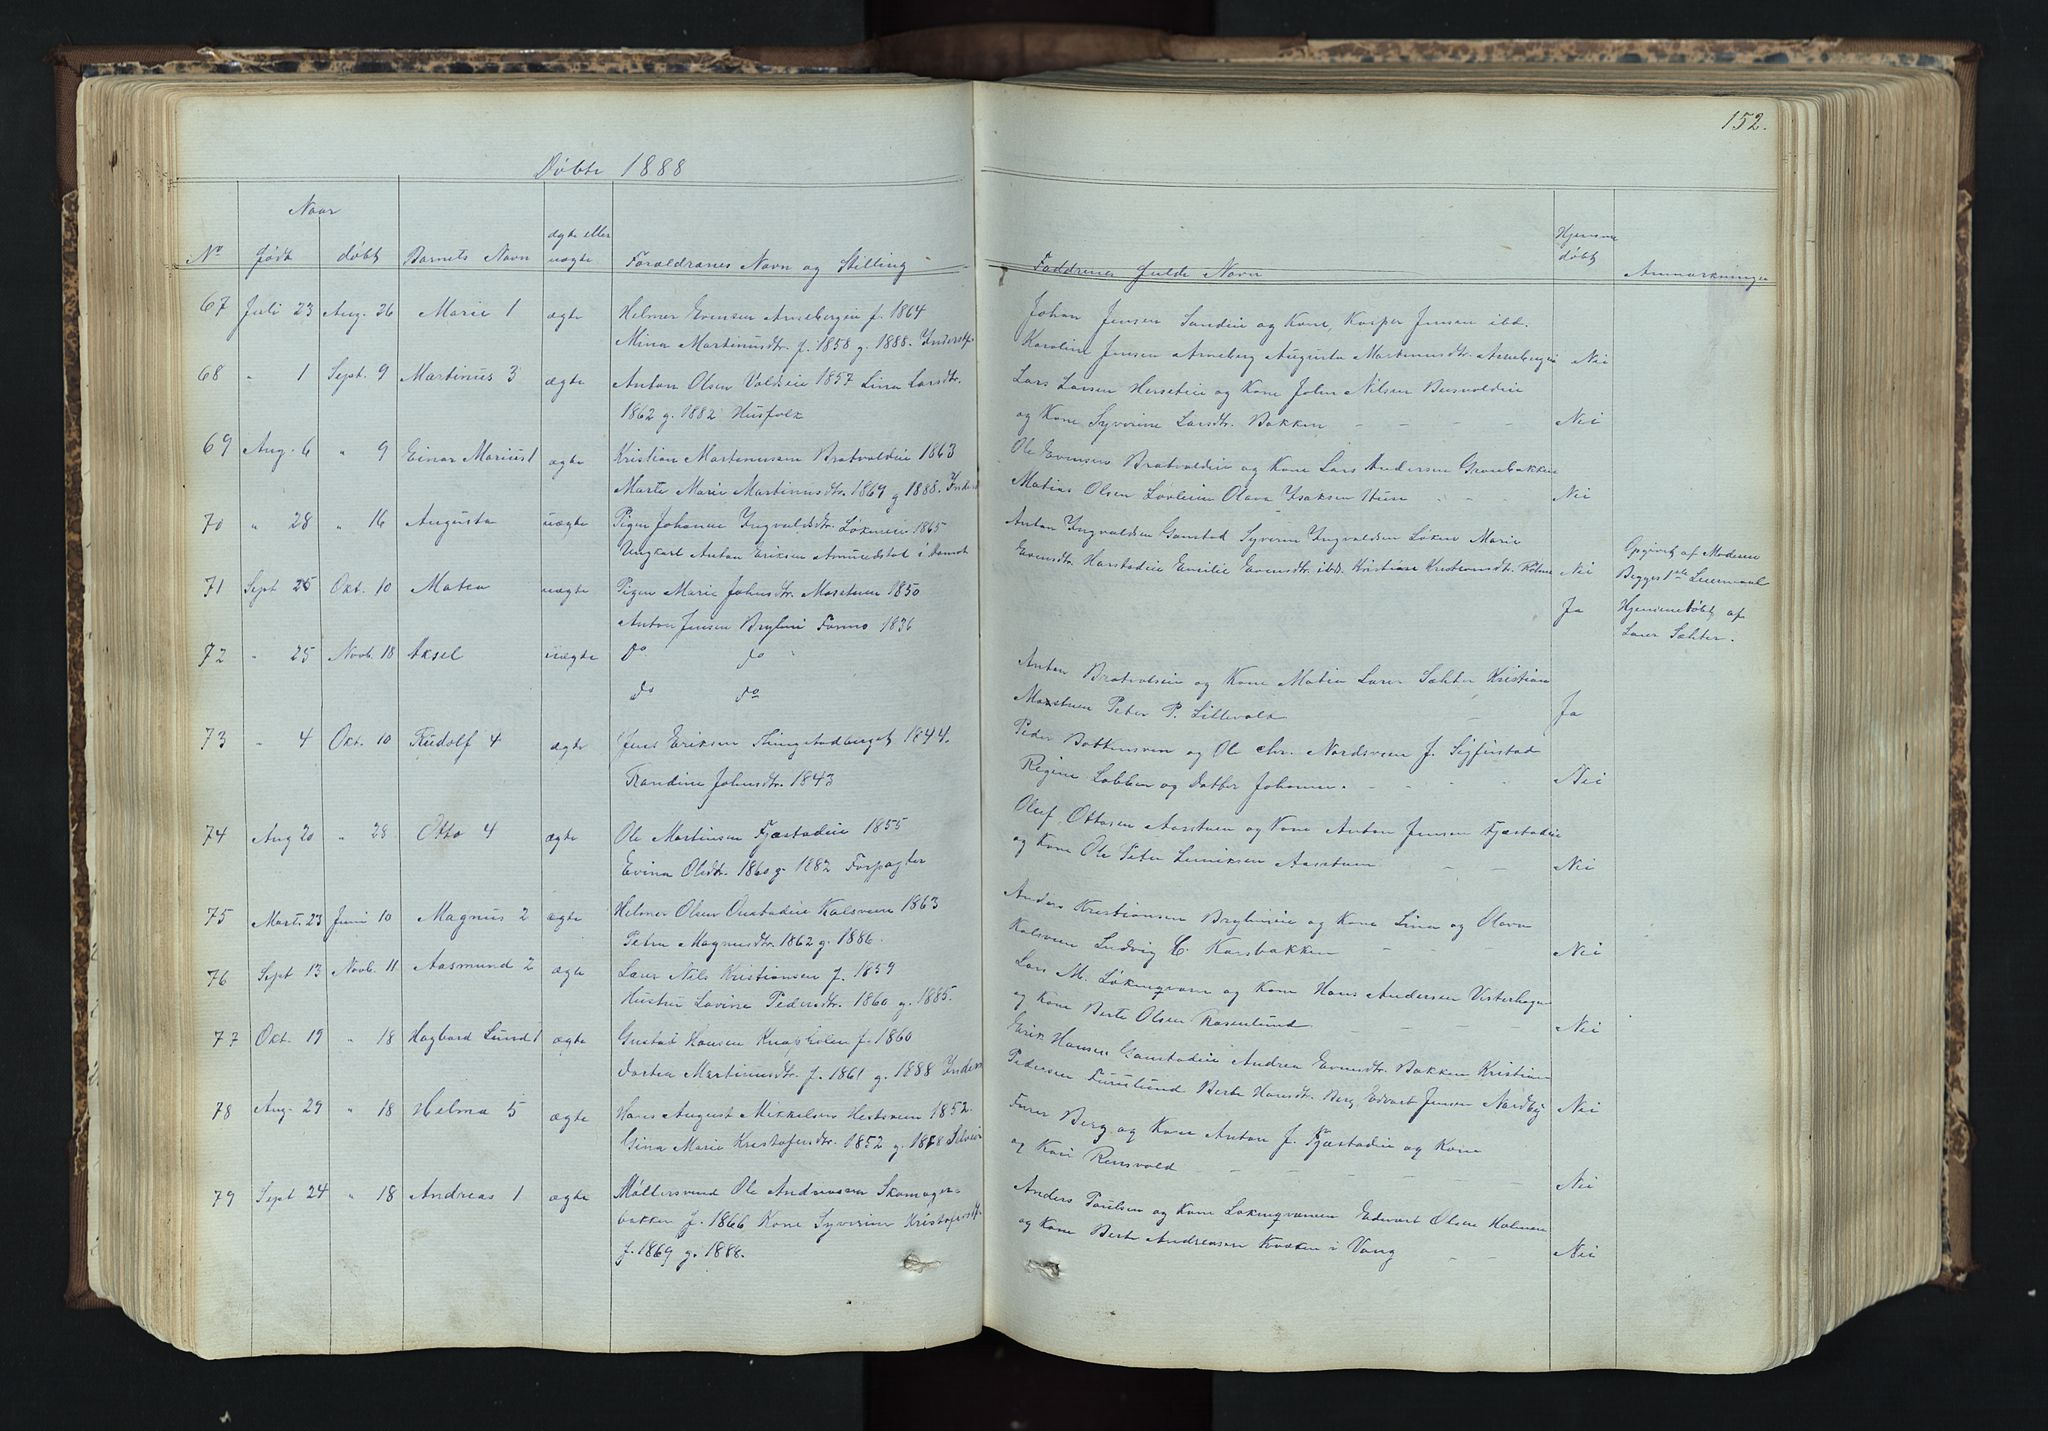 152.
Døbte 1888
Naar
No født døbt Barnets Navn ægte eller uægte Forældrenes Navn og Stilling Faddrenes fulde Navn Hjemmedøbt Anmærkninger
67 Juli 23 Aug. 26 Marie 1 ægte Helmer Evensen Arnebergeie f. 1864 Johan Jensen Sandeie og Kone, Kasper Jensen ibd.
Mina Martinusdtr. f. 1858 g. 1888. Inderst. Karoline Jensen Arneberg Augusta Martinusdtr. Arnebergeie Nei
68 " 1 Sept. 9 Martinus 3 ægte Anton Olsen Valdeie 1857 Lina Larsdtr. Lars Larsen Herseteie og Kone John Nilsen
1862 g. 1882 Husfolk og Kone Syverine Larsdtr. Bakken Nei
69 Aug. 6 " 9 Einar Marius 1 ægte Kristian Martinussen Bratvoldeie 1863 Ole Evensen Bratvoldeie og Kone Lars Andersen Granbakken
Marte Marie Martinusdtr. 1869 g 1888. Inderst Matias Olsen Løvlien Olava Isaksen Nei
70 " 28 " 16 Augusta uægte Pigen Johanne Ingvaldsdtr. Løkeneie 1865 Anton Ingvaldsen Gaustad Syverin Ingvaldsen Løken Marie
Ungkarl Anton Eriksen Amundstad i Aamot Evensdtr. Harstadeie Emilie Evensdtr. ibd. Kristian Nei Opgivet af Moderen
71 Sept 25 Okt. 10 Matea uægte Pigen Marie Johnsdtr. Mosstuen 1850 Begges 1ste Leiermaal
Anton Jensen 1836 Ja Hjemmedøbt af
72 " 25 Novb. 18 Aksel uægte do do Lærer Sæhter.
do do Anton og Kone Matea Lærer Sæhter Kristian
Mosstuen Peter P. Lillevold Ja
73 " 4 Okt. 10 Rudolf 4 ægte Jens Eriksen Skingstadberget 1844. Peder og Ole Chr. Nordsveen J.
Randine Johnsdtr. 1843 Regine Labben og Datter Johanne. Nei
74 Aug 20 " 28 Otto 4 ægte Ole Martinsen Fjæstadeie 1855 Oluf Ottosen Aasstuen og Kone Anton Jensen Fjæstadeie
Evina Olsdtr. 1860 g. 1882 Forpagter og Kone Ole Peter Aasstuen Nei
75 Marts 23 Juni 10 Magnus 2 ægte Helmer Olsen Kalsveen 1863 Anders Kristiansen og Kone Lina og Olava
Petra Magnusdtr. 1862 g. 1886. Kalsveen Ludvig C. Karsbakken Nei
76 Sept 13 Novb. 11 Aasmund 2 ægte Lærer Nils Kristiansen f. 1859 Lars M. Løkenqvæen og Kone Hans Andersen Vesterhagen
Hustru Lovise Pedersdtr. 1860 g. 1885. og Kone Berte Olsen Rosenlund Nei
77 Okt. 19 " 18 Hagbard Lund 1 ægte Gustav Hansen Knapholen f. 1860 Erik Hansen Gaustadeie Andrea Evensdtr. Bakken Kristian
Dortea Martinusdtr f. 1861 g. 1888 Inderst Pedersen Furulund Berte Hansdtr. Berg Edvart Jensen Nordby Nei
78 Aug. 29 " 18 Helma 5 ægte Hans August Mikkelsen Hestsveen 1852. Furer Berg og Kone Anton J. Fjæstadeie og Kone
Gina Marie Kristofersdtr. 1852 g. 1878 Selveier og Kari Rensvold Nei
79 Sept 24 " 18 Andreas 1 ægte Møllersvend Ole Andreassen Skomager- Anders Paulsen og Kone Løkenqvænen Edvart Olsen Holmen
bakken f. 1866 Kone Syverine Kristofersdt. og Kone Berte Andreassen Kvæken i Vang Nei
f. 1869 g. 1888.